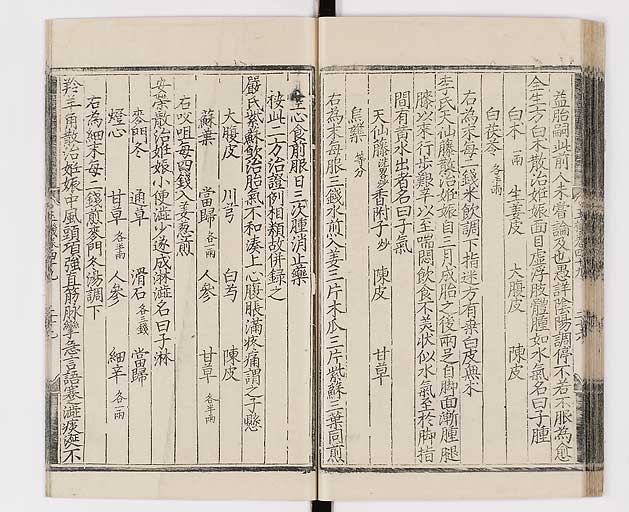 益胎嗣此前人未嘗論及也愚詳陰陽調停不若不服為愈
全生方白朮散治姙娠面目虚浮肢體腫如水氣名曰子腫
白朮一兩 生姜皮 大腹皮 陳皮
白茯苓各半兩
右為末每二錢米飲調下指迷方有桑白皮無朮
李氏天仙藤散治姙娠自三月成胎之後兩足自脚面漸腫腿
膝以来行歩艱辛以至喘悶飲食不美状似水氣至於脚指
間有黄水出者名曰子氣
天仙藤洗略炒 香附子炒 陳皮 甘草
烏藥等分
右為末每服三錢水煎入姜三片木瓜三片紫蘇三葉同煎
空心食前服日三次腫消止藥
按此二方治證例相類故併録之
嚴氏紫蘇飲治胎氣不和湊上心腹脹滿疼痛謂之子懸
大腹皮 川芎 白芍 陳皮
蘇葉 當歸各一兩 人參 甘草各半兩
右㕮咀每四錢入姜葱煎
安榮散治姙娠小便澁少遂成淋澁名曰子淋
麥門冬 通草 滑石各三錢 當歸
燈心 甘草各半兩 人參 細辛各一兩
右為細末每二錢煎麥門冬湯調下
羚羊角散治姙娠中風頭項強直筋脉攣急言語蹇澁痰涎不